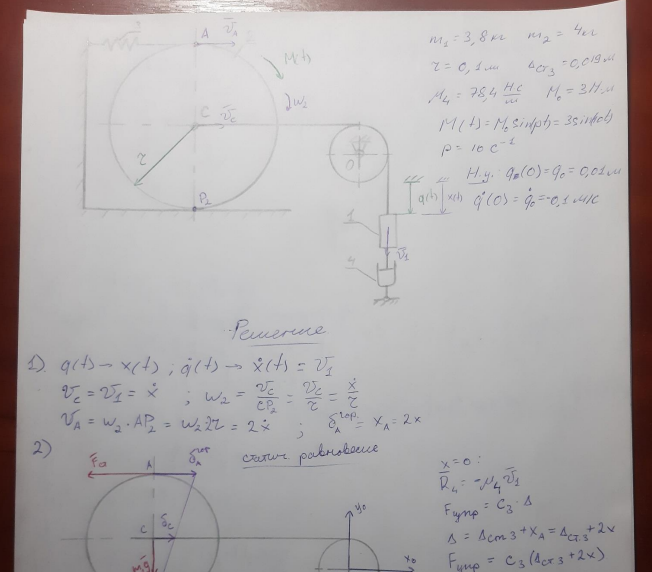 3
A
v̄_A
2
M(t)
ω₂
C
v̄_C
r
O
P₂
q(t)
x(t)
1
v̄₁
4
m₁ = 3,8 кг m₂ = 4кг
r = 0,1 м Δст3 = 0,019 м
μ₄ = 78,4 Нс/м M₀ = 3 Н.м
M(t) = M₀ sin(pt) = 3sin(10t)
p = 10 с⁻¹
Н.у.: q(0) = q₀ = 0,01 м
q̇(0) = q̇₀ = -0,1 м/с
Решение
1) q(t) → x(t) ; q̇(t) → ẋ(t) = v̄₁
v̄_C = v̄₁ = ẋ ; ω₂ = v̄_C/CP₂ = v̄_C/r = ẋ/r
v̄_A = ω₂ · AP₂ = ω₂2r = 2ẋ ; δ_A^гор = x_A = 2x
2) статич. равновесие
F̄a
A
δ_A^гор
C
δ_C
y₀
x₀
x=0:
R̄₄ = -μ₄v̄₁
Fупр = C₃ · Δ
Δ = Δст3 + x_A = Δст3 + 2x
Fупр = C₃(Δст3 + 2x)